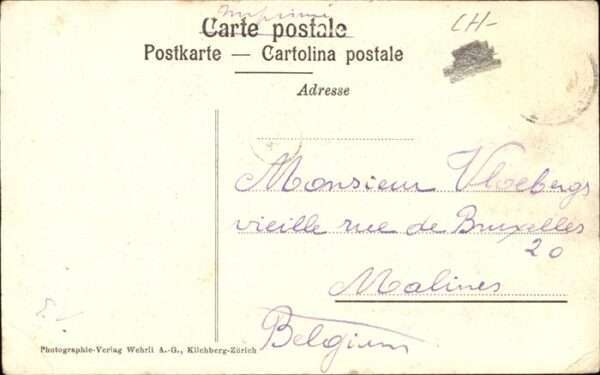 Imprimé
Carte postale
CH-
Postkarte — Cartolina postale
Adresse
Monsieur Vloebergs
vieille rue de Bruxelles
20
Malines
Belgium
Photographie-Verlag Wehrli A.-G., Kilchberg-Zürich